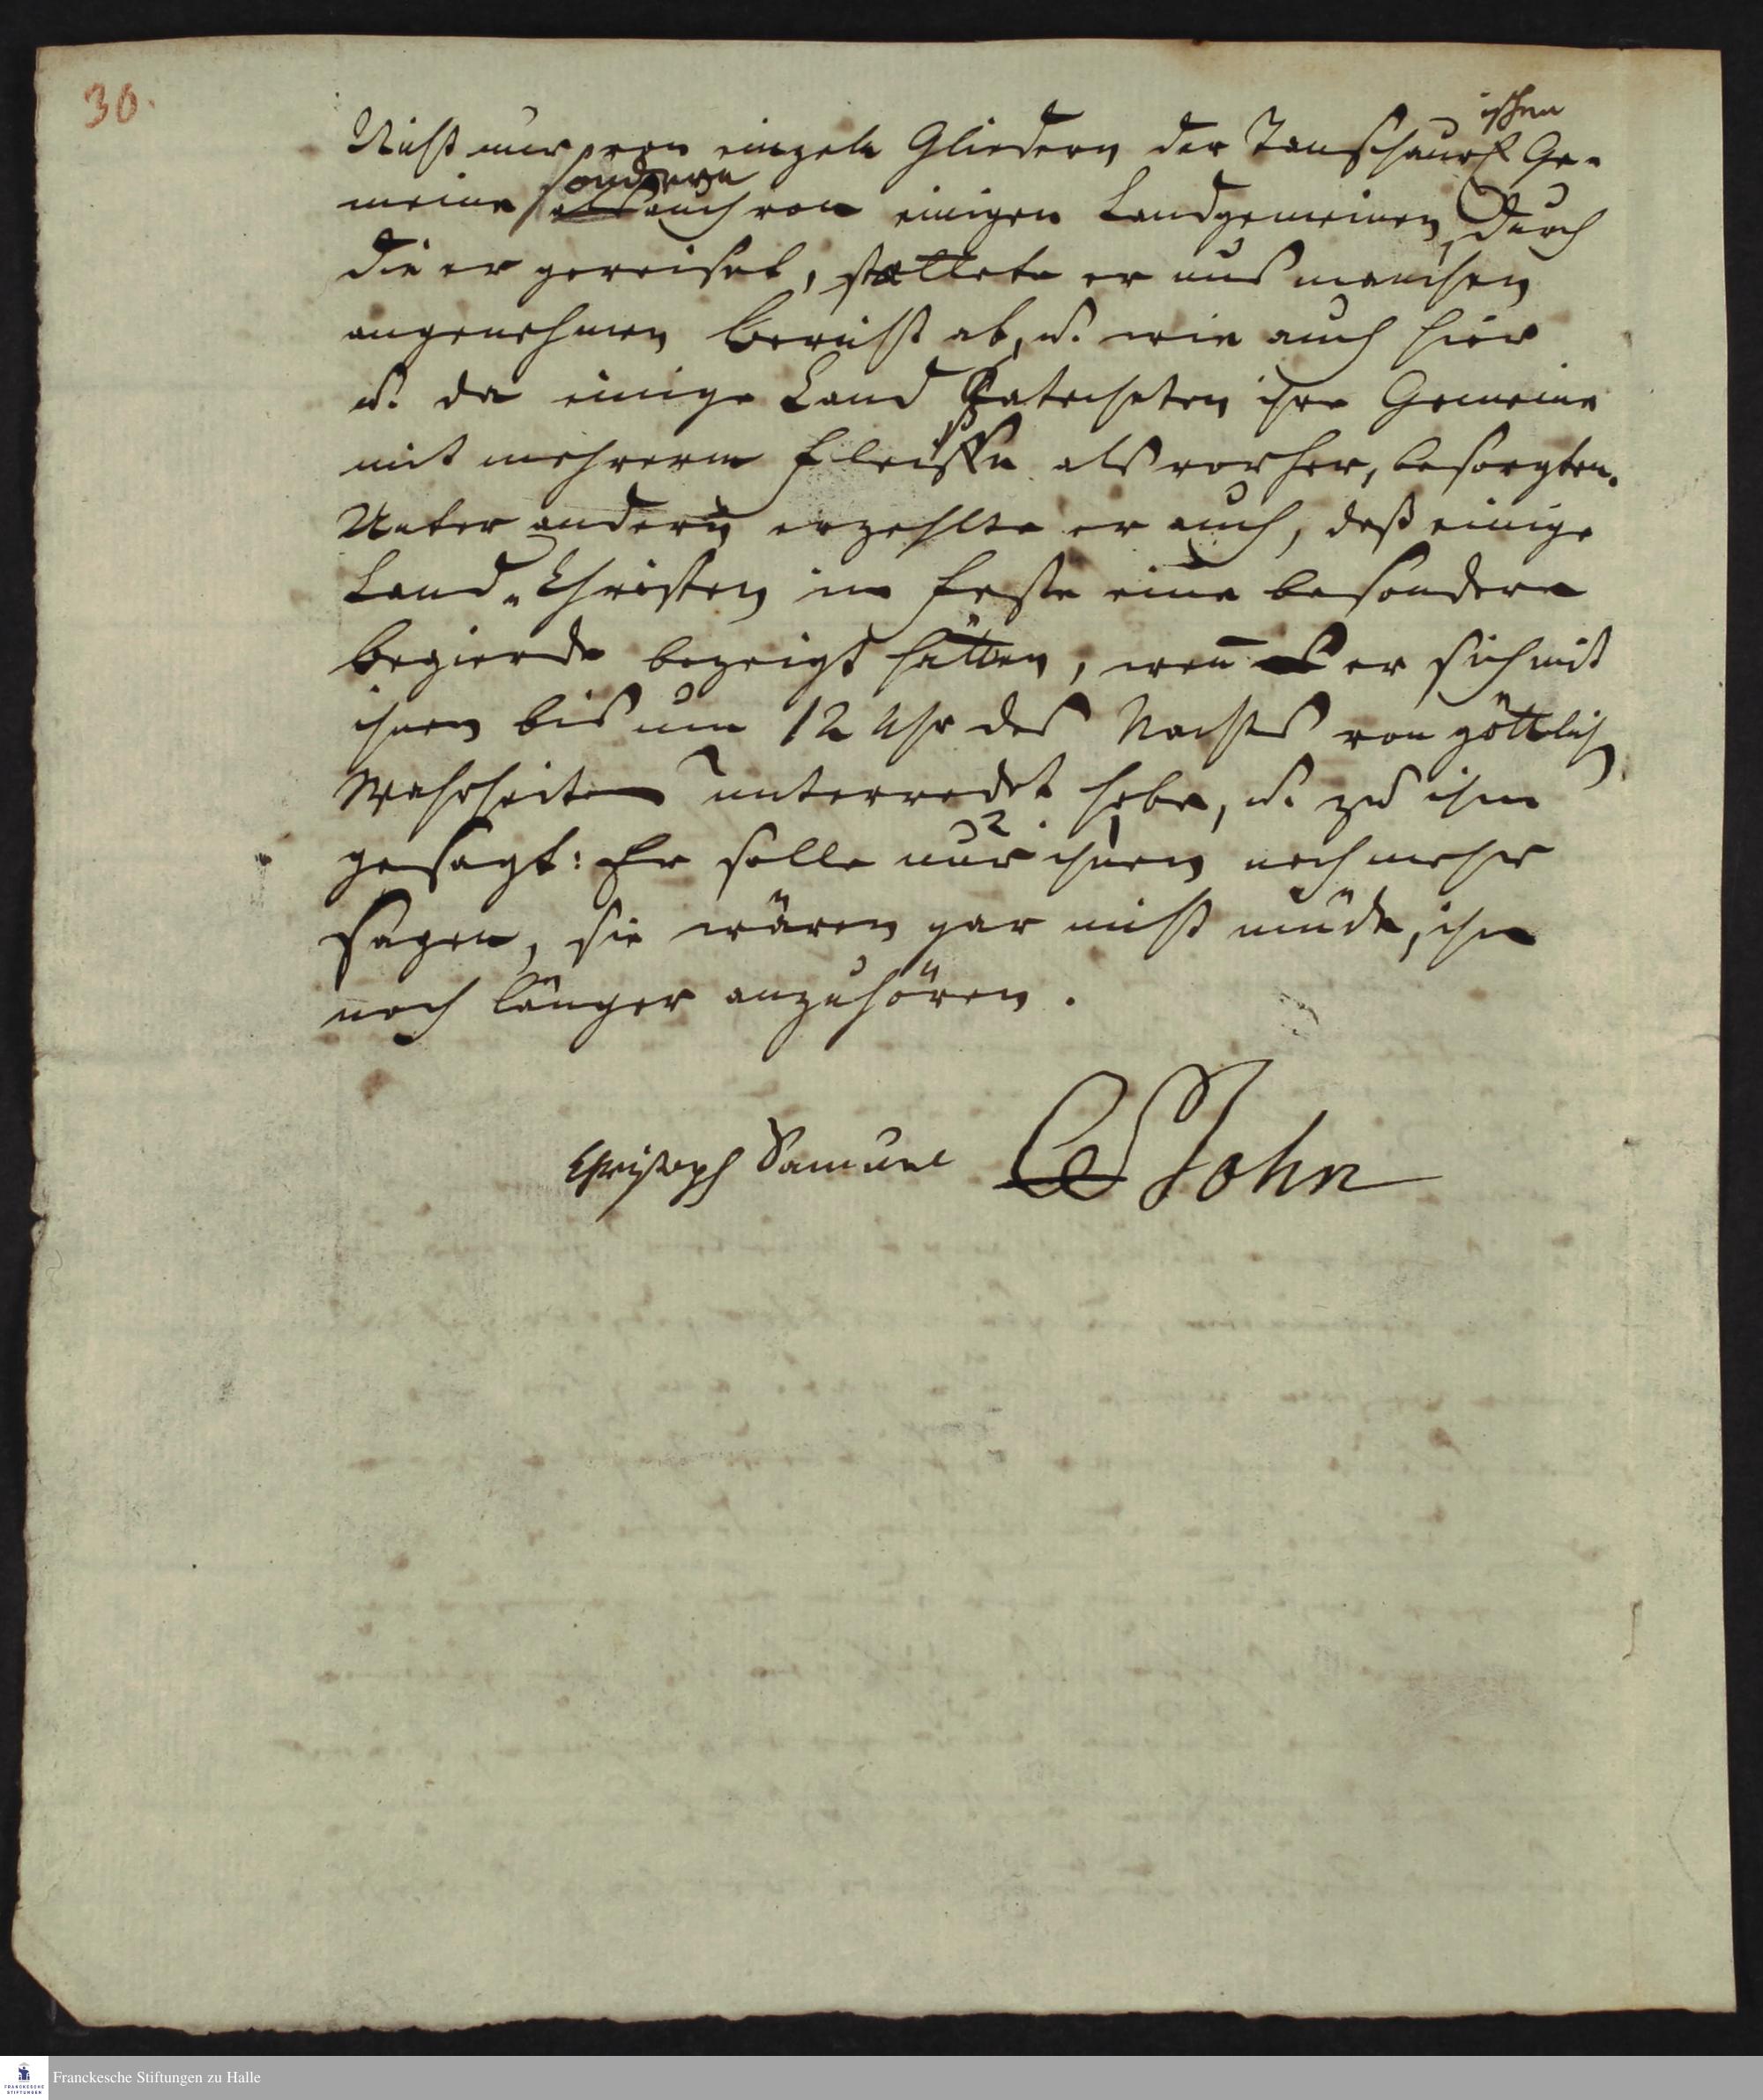 30.
Nicht nur von einzeln Gliedern der Tanschaurischen Ge-
meine sondern auch von einigen Landgemeinen, durch
die er gereiset, stattete er uns manchen
angenehmen Bericht ab, u. wie auch hier
u. da einige Land Catecheten ihre Gemeine
mit mehrerm Fleisse als vorher, besorgten.
Unter andern erzehlte er auch, daß einige
Land-Christen im Feste eine besondere
Begierde bezeigt hätten, wen̄ er sich mit
ihnen bis um 12 Uhr des Nachts von göttlich
Wahrheiten unterredet habe, u. zu ihm
gesagt: Er solle nur ihnen noch mehr
sagen, sie wären gar nicht müde, ihn
noch länger anzuhören.
Christoph Samuel John
Franckesche Stiftungen zu Halle
FRANCKESCHE
STIFTUNGEN